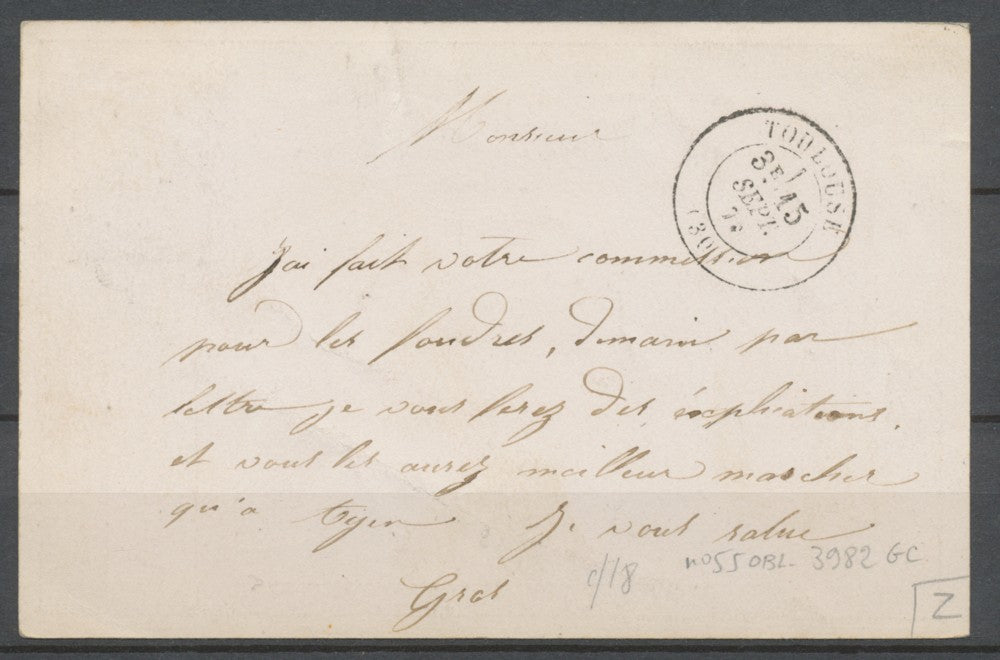 Monsieur
TOULOUSE
3E /
15
SEPT.
(30)
J'ai fait votre commission
pour les foudres, demain par
lettre je vous ferez des éxplications,
et vous les aurez meilleur marcher
qu'a
Je vous salue
Gras
c/18
no 55 OBL. 3982 GC
Z